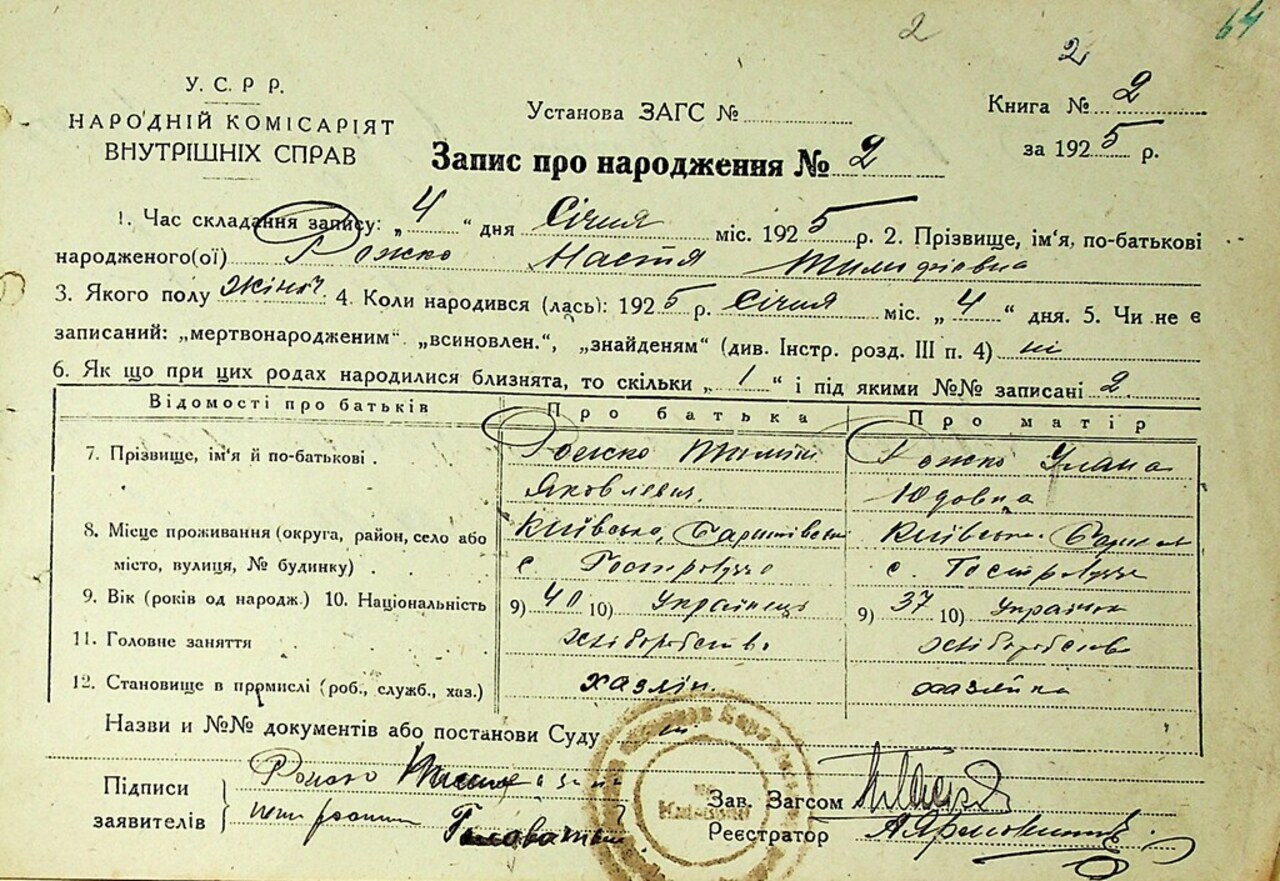 2
64
2
У. С. Р Р.
НАРОДНІЙ КОМІСАРІЯТ
ВНУТРІШНІХ СПРАВ
Установа ЗАГС №
Книга № 2
за 1925 р.
Запис про народження № 2
1. Час складання запису: „4“ дня Січня міс. 1925 р. 2. Прізвище, ім‘я, по-батькові
народженого(ої) Рожко Настя
3. Якого полу жіноч. 4. Коли народився (лась): 1925 р. Січня міс. „4“ дня. 5. Чи не є
записаний: „мертвонародженим“. „всиновлен.“, „знайденям“ (див. Інстр. розд. III п. 4) ні
6. Як що при цих родах народилися близнята, то скільки „1“ і під якими №№ записані 2.
Відомості про батьків Про батька Про матір
7. Прізвище, ім‘я й по-батькові . Рожко Рожко Уляна
Яковлевич. Юдовна
8. Місце проживання (округа, район, село або Київська, Київська.
місто, вулиця, № будинку) . с. Гостролуччє с. Гостролуччє
9. Вік (років од народж.) 10. Національність 9) 40 10) Українець 9) 37 10) Українка
11. Головне заняття хліборобство хліборобство
12. Становище в промислі (роб., служб., хаз.) хазяін. хазяйка
Назви и №№ документів або постанови Суду ні
Підписи
заявителів
Рожко
Зав. Загсом
Реєстратор